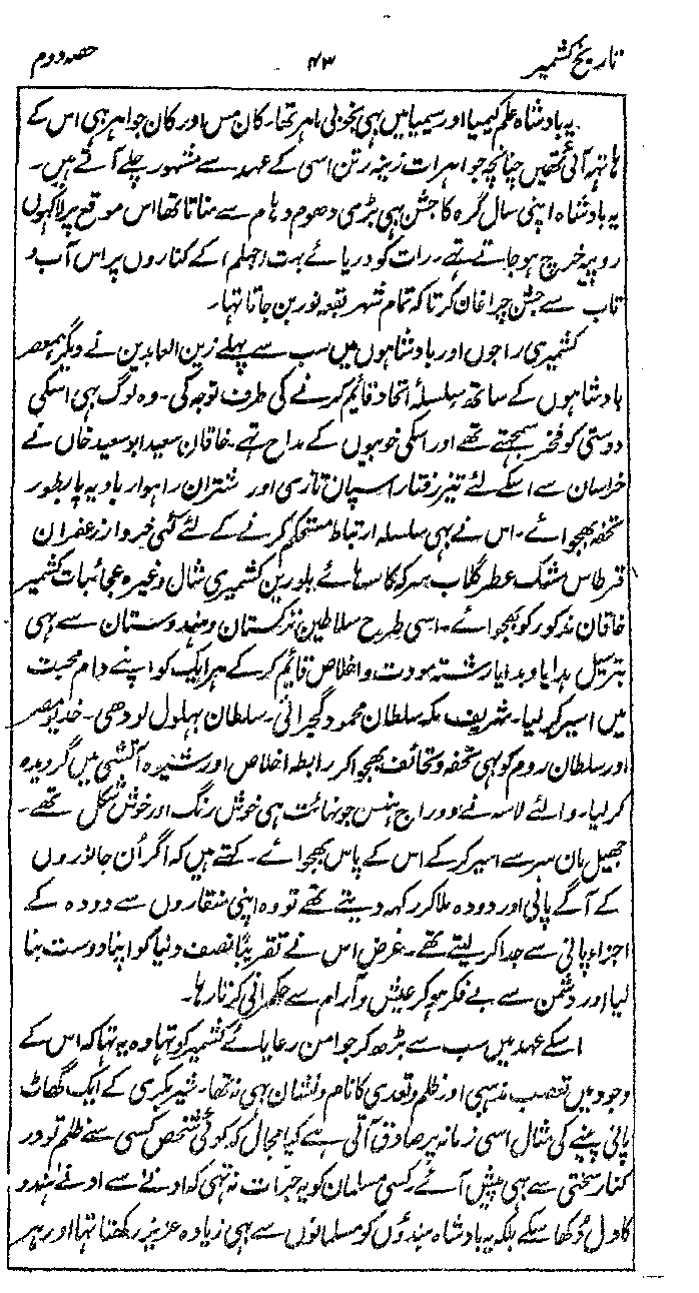 تاریخ کشمیر ۴۳ حصہ دوم
یہ بادشاہ علم کیمیا اور سیمیا میں بہی بخوبی ماہر تہا۔ کان مس اور کان جواہر بہی اس کے
ہاتہہ آئی تھیں چنانچہ جواہرات زینہ رتن اسی کے عہد سے مشہور چلے آتے ہیں۔
یہ بادشاہ اپنی سال گرہ کا جشن بہی بڑی دھوم دہام سے مناتا تھا اس موقع پر لاکہوں
روپیہ خرچ ہو جاتے تہے۔ رات کو دریائے بہت (جہلم) کے کناروں پر اس آب و
تاب سے جشن چراغان کرتا کہ تمام شہر بقعہ نور بن جاتا تہا۔
کشمیری راجوں اور بادشاہوں میں سب سے پہلے زین العابدین نے دیگر ہمعصر
بادشاہوں کے ساتھ سلسلۂ اتحاد قایم کرنے کی طرف توجہ کی۔ وہ لوگ بہی اسکی
دوستی کو فخر سمجہتے تھے اور اسکی خوبیوں کے مداح تہے۔ خاقان سعید ابوسعید خاں نے
خراسان سے اسکے لئے تیز رفتار اسپان تازی اور شتران راہوار بادیہ پا بطور
تحفہ بھجوائے۔ اس نے بہی سلسلہ ارتباط مستحکم کرنے کے لئے کئی خروار زعفران
قرطاس مشک عطر گلاب سرکہ کاسہائے بلورین کشمیری شال وغیرہ عجائبات کشمیر
خاقان مذکور کو بھجوائے۔ اسی طرح سلاطین ترکستان و ہندوستان سے بہی
بترسیل ہدایا و بدایا رشتہ مودت و اخلاص قایم کرکے ہر ایک کو اپنے دام محبت
میں اسیر کر لیا۔ شریف مکہ سلطان محمود گجراتی۔ سلطان بہلول لودھی۔ خدیو مصر
اور سلطان روم کو بہی تحفہ و تحائف بھجوا کر رابطہ اخلاص اور شیوہ آشتی میں گرویدہ
کر لیا۔ والئے لاسہ نے دو راج ہنس جو نہائت ہی خوش رنگ اور خوش شکل تھے۔
جھیل مان سر سے اسیر کرکے اس کے پاس بھجوائے۔ کہتے ہیں کہ اگر اُن جانوروں
کے آگے پانی اور دودہ ملا کر رکہہ دیتے تھے تو وہ اپنی منقاروں سے دودہ کے
اجزاء پانی سے جدا کر لیتے تھے۔ غرض اس نے تقریباً نصف دنیا کو اپنا دوست بنا
لیا اور دشمن سے بے فکر ہو کر عیش و آرام سے حکمرانی کرتا رہا۔
اسکے عہد میں سب سے بڑھ کر جو امن رعایائے کشمیر کو تہا وہ یہ تہا کہ اس کے
وجود میں تعصب مذہبی اور ظلم و تعدی کا نام و نشان بہی نہ تھا۔ شیر بکری کے ایک گھاٹ
پانی پینے کی مثال اسی زمانہ پر صادق آتی ہے کیا مجال کہ کوئی شخص کسی سے ظلم تو در
کنار سختی سے بہی پیش آئے کسی مسلمان کو یہ جرات نہ تہی کہ ادنےٰ سے ادنےٰ ہندو
کا دل دُکھا سکے بلکہ یہ بادشاہ ہندوؤں کو مسلمانوں سے بہی زیادہ عزیز رکھتا تہا اور ہر